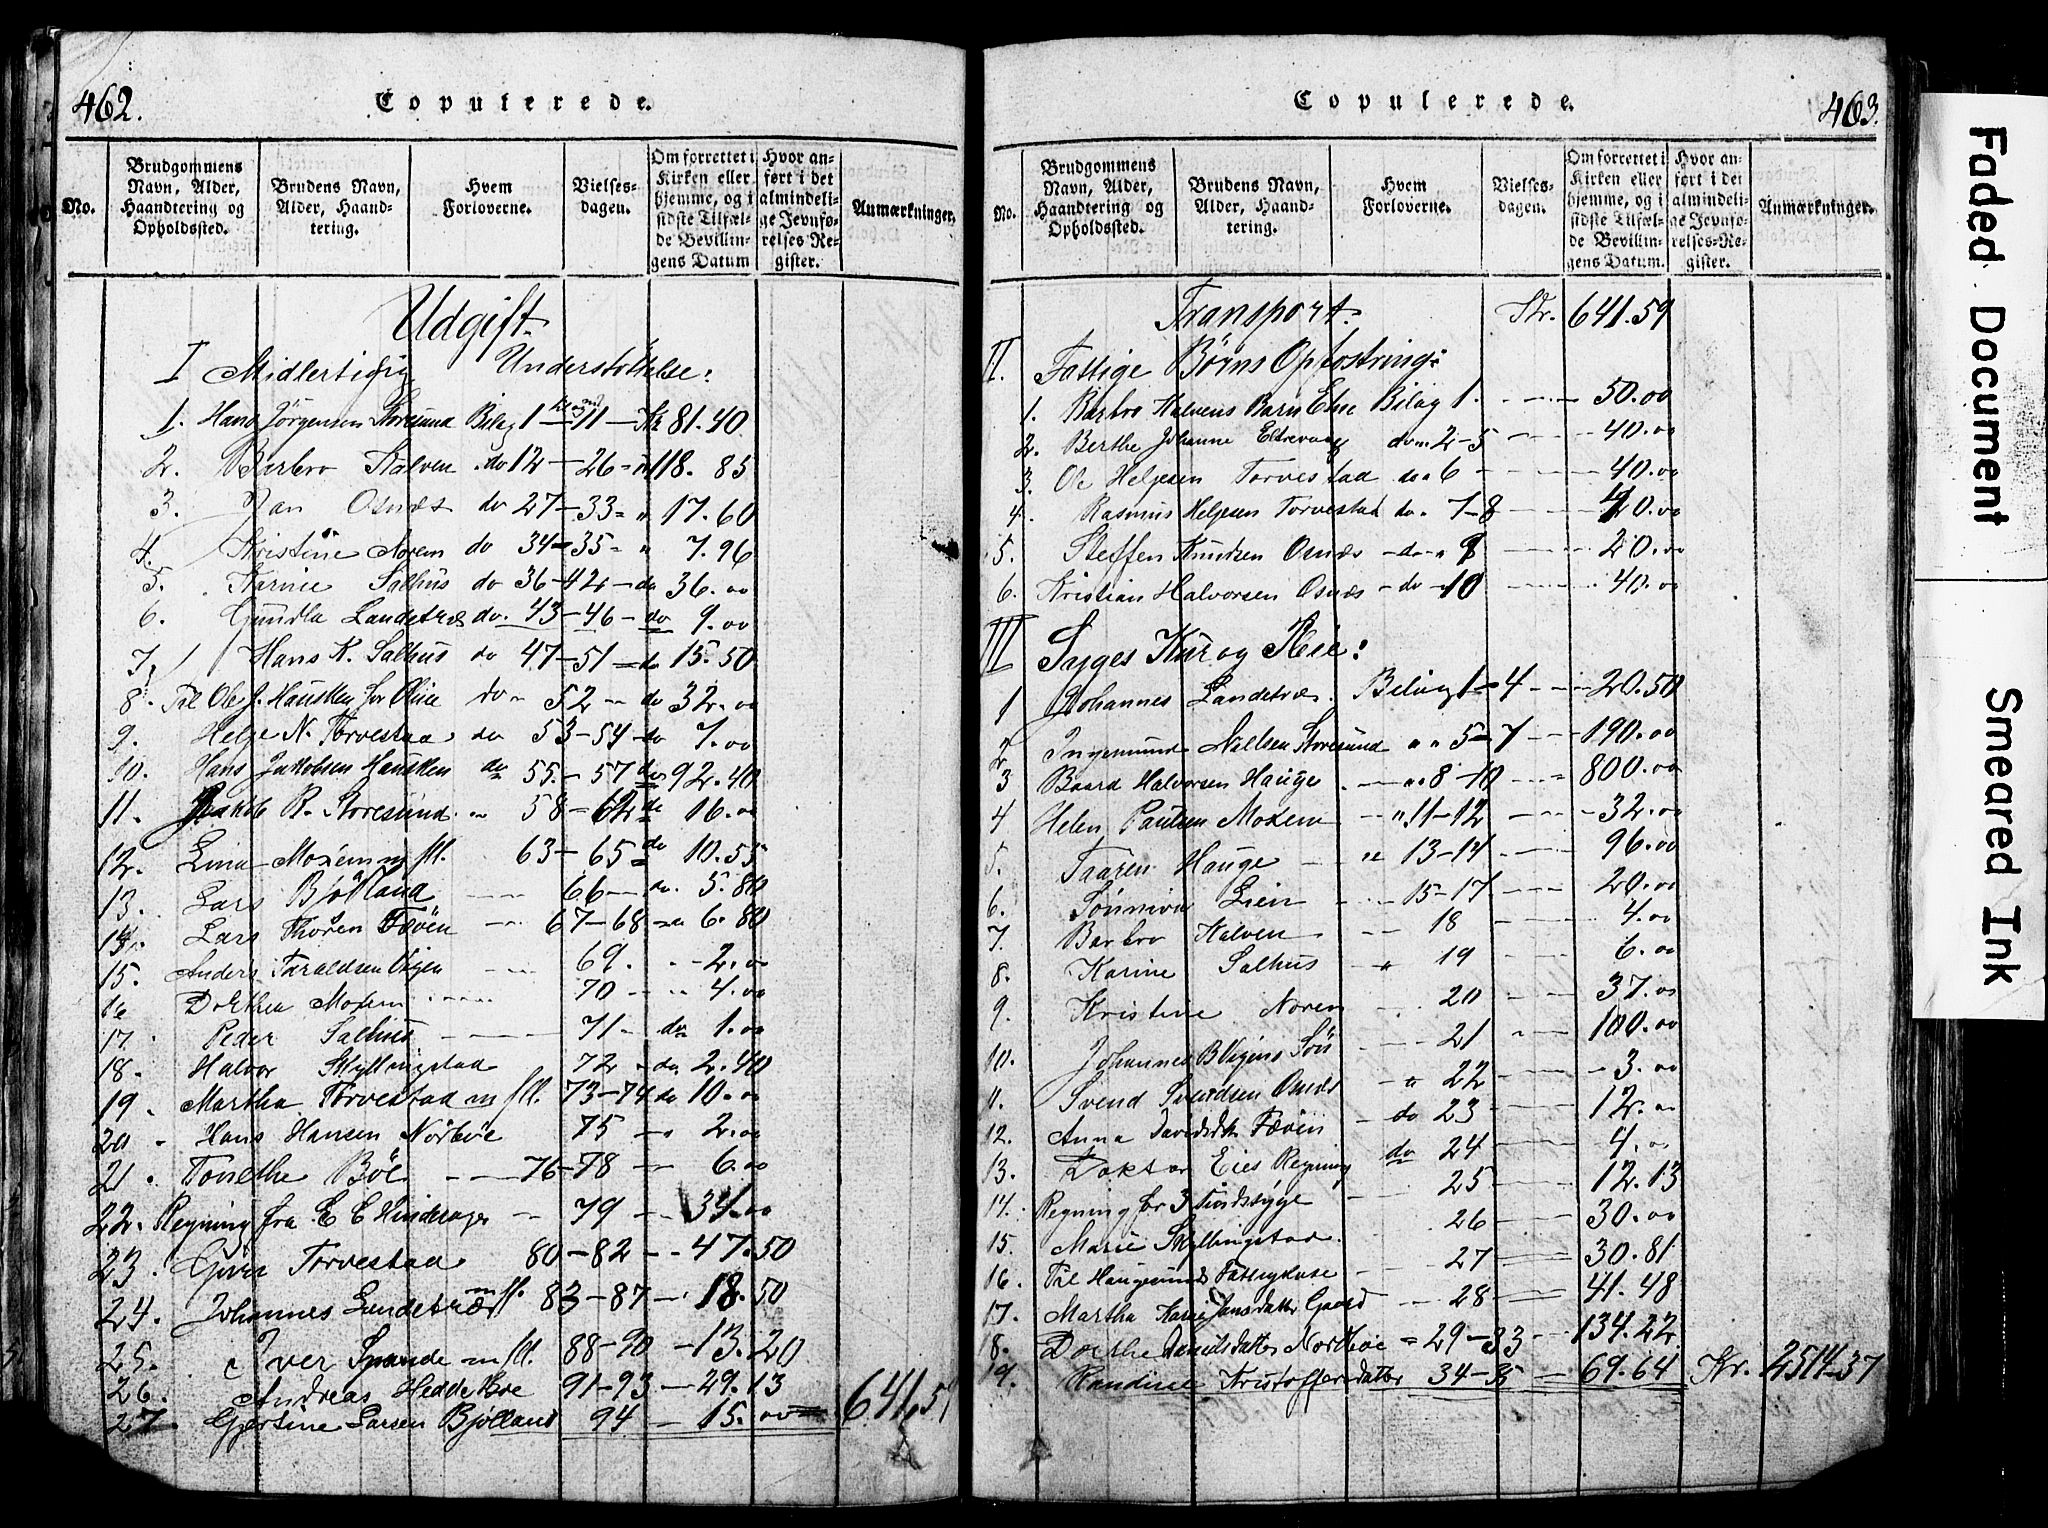 462.
Copulerede.
No.
Brudgommens Navn, Alder, Haandtering og Opholdssted.
Brudens Navn, Alder, Haandtering.
Hvem Forloverne.
Vielsesdagen.
Om forrettet i Kirken eller hjemme, og i sidste Tilfælde Bevillingens Datum
Hvor anført i det almindelige Jevnførelses Register.
Anmærkninger.
Udgift
I Midlertidig Understøttelse:
1. Hans Jörgensen Storesund Bilag 1 til og m 11 — Kr 81.40
2. Barbro Kalven do 12 — 26 = " 118.85
3. Jan Osnæs do 27 — 33 = " 17.60
4. Kristine Norem do 34 — 35 = " 7.96
5. Karine Salhus do 36 - 42 — do 36.00
6. Gundla Landetræ do. 43 — 46 — do 9.00
7. Hans K. Salhus do 47 — 51 — do 15.50
8. Til Ole J. Hausken for Oline do " 52 — do 32.00
9. Helge N. Torvestad do 53 - 54 - do 7.00
10. Hans Jakobsen Hausken do 55. — 57 do 92.40
11. Jakob R. Storesund " 58 — 62 do 16.00
12. Lina Moxem m fl. 63 — 65 = do 10.55
13. Lars Bjölland 66 — do. 5.80
14. Lars Thoren Fæöen 67 — 68 — do 6.80
15. Anders Taraldsen 69. " - 2.00
16 Dorthea Moxem 70 — " 4.00
17. Peder Salhus 71 — do 1.00
18. Halvor Skyllingstad 72 — do 2.40
19. Martha Torvestad m fl. 73 — 74 do 10.00
20 Hans Hansen Nordböe 75 — " 2.00
21. Tonethe Böe 76 - 78 — 6.00
22. Regning fra E E Hinderager — 79 — 34.00
23. Torvestad 80 — 82 — 47.50
24. Johannes Landetræ m fl. 83 — 87 — 18.50
25. Iver Spande m fl. 88 — 90 — 13.20
26. Andreas Hedde 91 — 93 — 29.13
27 Gjertine Larsen Bjölland 94 — 15.00 641,59
463.
Copulerede.
No.
Brudgommens Navn, Alder, Haandtering og Opholdssted.
Brudens Navn, Alder, Haandtering.
Hvem Forloverne.
Vielsesdagen.
Om forrettet i Kirken eller hjemme, og i sidste Tilfælde Bevillingens Datum.
Hvor anført i det almindelige Jevnførelses-Register.
Anmærkninger.
Transport. Kr. 641.59
II. Fattige Börns Opfostring:
1. Barbro Kalvens Barn Elne Bilag 1. — 50.00
2. Berthe Johanne Eltrevaag do " 2 - 5 — 40.00
3. Ole Helgesen Torvestad do " 6 — 40.00
4. Rasmus Helgesen Torvestad do " 7 - 8 — 40.00
5. Steffen Knudsen Osnæs — do " 9 — 20.00
6. Kristian Halvorsen Osnæs — do — 10 — 40.00
III Syges Kur og Pleie:
1 Johannes Landetræ. Bilag 1 - 4 — 20.50
2 Ingemund Nilsen Storesund " " 5 - 7 — 190.00
3 Baard Halvorsen Hauge " " 8 - 10 — 800.00
4 Helen Paulsen Moxem — " 11 - 12 — 32.00
5. Taaren Hauge — " 13 - 14 — 96.00
6. Sönniva Lien — 15 - 17 — 20.00
7. Barbro Kalven — 18 — 4.00
8. Karine Salhus — " 19 — 6.00
9. Kristine Norem — 20 — 37.00
10. Johannes B Vigens Sön — 21 " — 100.00
11. Svend Svendsen Osnæs — " 22 — 3.00
12. Anna Davidsdtr Fæöen do 23 — 12.00
13. Doktor Eies Regning do 24 — 4.00
14. Regning for 3 Sindssyge — 25 — 12.13
15. Marie Skyllingstad — 26 — 30.00
16. Til Haugesunds Fattigkasse — 27 — 30.81
17. Martha Karine Jansdatter Gaard — 28 — 41.48
18. Dorthe Danielsdatter Nordböe = 29 — 33 — 134.22
19. Randine Kristoffersdatter 34 - 35 — 69.64 Kr. 2514.37
Faded Document
Smeared Ink